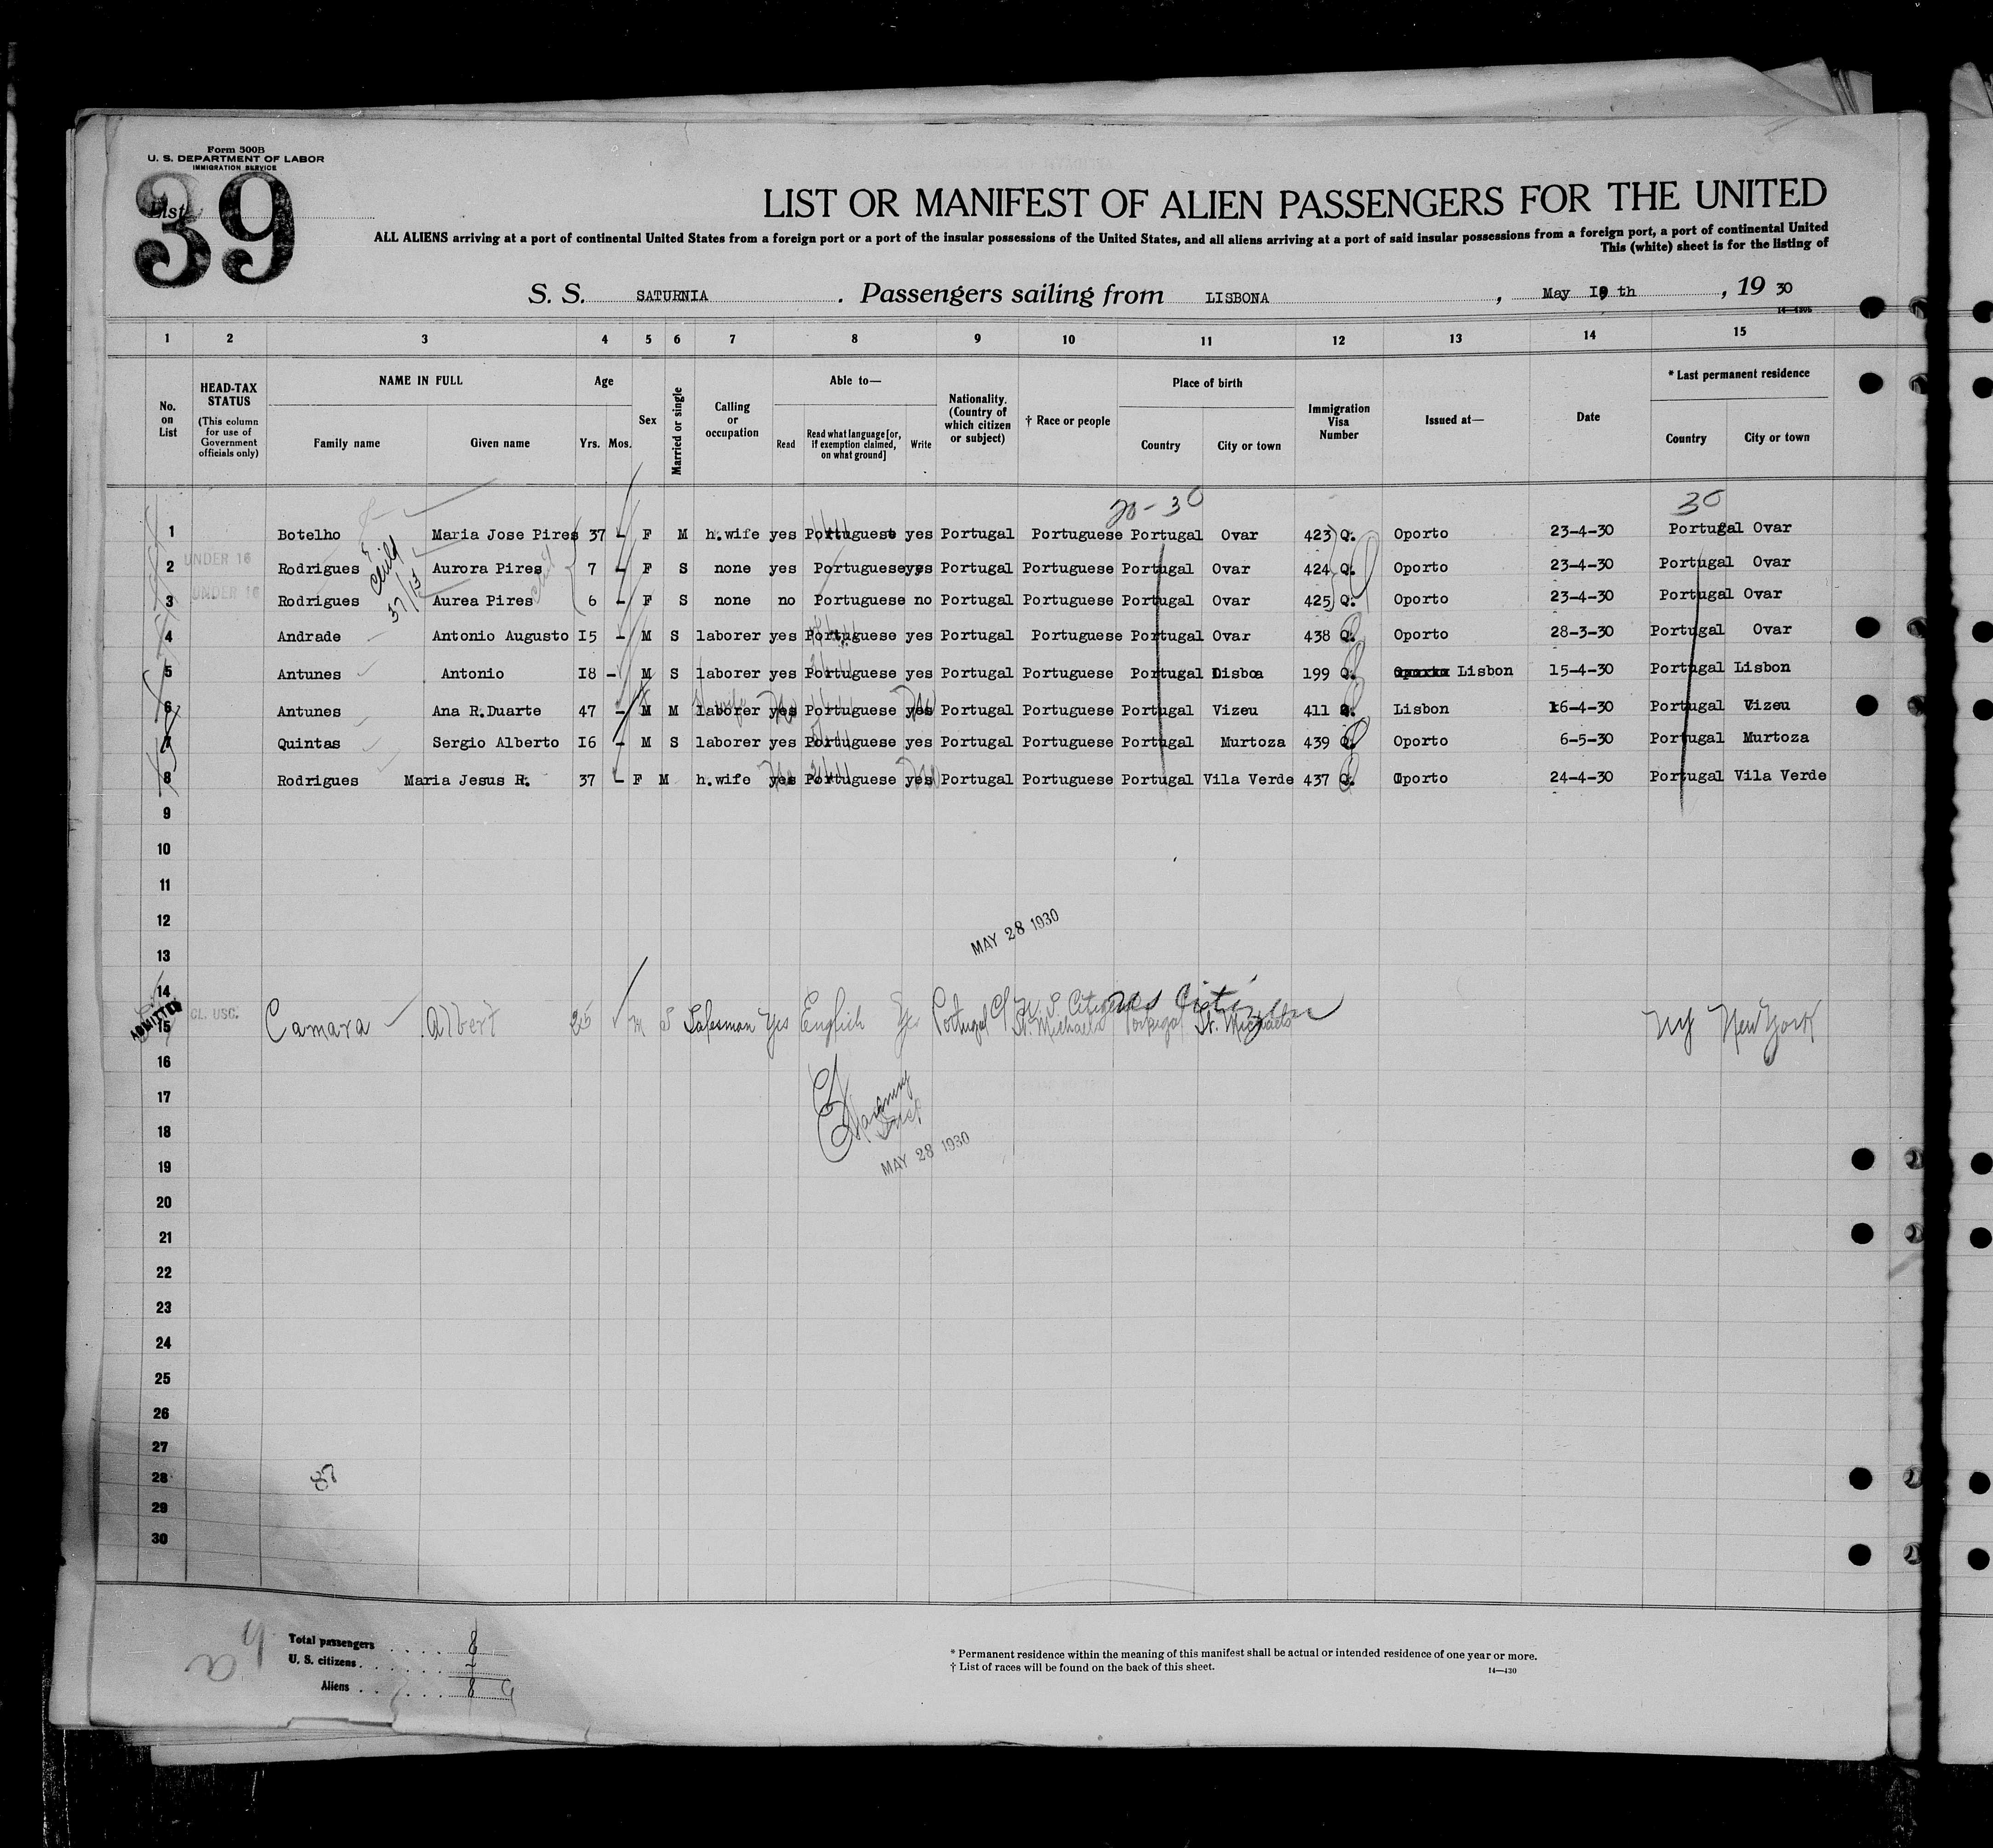 Form 500B
U. S. DEPARTMENT OF LABOR
IMMIGRATION SERVICE
List
39
LIST OR MANIFEST OF ALIEN PASSENGERS FOR THE UNITED
ALL ALIENS arriving at a port of continental United States from a foreign port or a port of the insular possessions of the United States, and all aliens arriving at a port of said insular possessions from a foreign port, a port of continental United
This (white) sheet is for the listing of
S. S. SATURNIA . Passengers sailing from LISBONA , May I9 th , 19 30
1 2 3 4 5 6 7 8 9 10 11 12 13 14 15
No. on List
HEAD-TAX STATUS (This column for use of Government officials only)
NAME IN FULL
Family name Given name
Age
Yrs. Mos.
Sex
Married or single
Calling or occupation
Able to—
Read Read what language [or, if exemption claimed, on what ground] Write
Nationality. (Country of which citizen or subject)
† Race or people
Place of birth
Country City or town
Immigration Visa Number
Issued at—
Date
* Last permanent residence
Country City or town
20-30 30
1 Botelho Maria Jose Pires 37 - F M h.wife yes Portuguese yes Portugal Portuguese Portugal Ovar 423 Q. Oporto 23-4-30 Portugal Ovar
UNDER 16
2 Rodrigues Aurora Pires 7 - F S none yes Portuguese yes Portugal Portuguese Portugal Ovar 424 Q. Oporto 23-4-30 Portugal Ovar
child
37/13
UNDER 16
3 Rodrigues Aurea Pires 6 - F S none no Portuguese no Portugal Portuguese Portugal Ovar 425 Q. Oporto 23-4-30 Portugal Ovar
4 Andrade Antonio Augusto I5 - M S laborer yes Portuguese yes Portugal Portuguese Portugal Ovar 438 Q. Oporto 28-3-30 Portugal Ovar
5 Antunes Antonio I8 - M S laborer yes Portuguese yes Portugal Portuguese Portugal Lisboa 199 Q. Oporto Lisbon 15-4-30 Portugal Lisbon
6 Antunes Ana R.Duarte 47 - M M laborer yes Portuguese yes Portugal Portuguese Portugal Vizeu 411 Q. Lisbon 16-4-30 Portugal Vizeu
7 Quintas Sergio Alberto I6 - M S laborer yes Portuguese yes Portugal Portuguese Portugal Murtoza 439 Q. Oporto 6-5-30 Portugal Murtoza
8 Rodrigues Maria Jesus R. 37 - F M h.wife yes Portuguese yes Portugal Portuguese Portugal Vila Verde 437 Q. Oporto 24-4-30 Portugal Vila Verde
9
10
11
12
MAY 28 1930
13
14
ADMITTED
15 CL. USC. Camara Albert 25 M S Salesman Yes English Yes Portugal U. S. Citizen St. Michaels Portugal St. Michaels NY New York
16
17
18
MAY 28 1930
19
20
21
22
23
24
25
26
27
28 87
29
30
Total passengers 8
U. S. citizens -
Aliens 8 9
* Permanent residence within the meaning of this manifest shall be actual or intended residence of one year or more.
† List of races will be found on the back of this sheet. 14—430